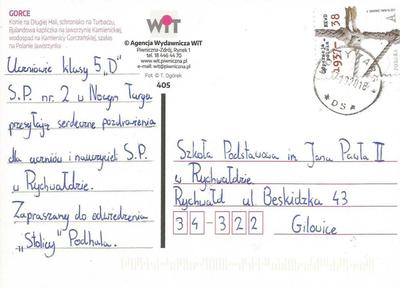 GORCE
Konie na Długiej Hali, schronisko na Turbaczu,
Bulandowa kapliczka na Jaworzynie Kamienickiej,
wodospad na Kamienicy Gorczańskiej, szałas
na Polanie Jaworzynka
WIT
® Agencja Wydawnicza WIT
Piwniczna-Zdrój, Rynek 1
tel. 18 446 44 70
www.wit.piwniczna.pl
e-mail: wit@piwniczna.pl
Fot © T. Ogórek
405
Uczniowie klasy 5 „D"
S.P. nr 2 u Nowym Targu
przesyłają serdeczne pozdrowienia
dla uczniów i nauczycieli S.P.
w Rychwałdzie.
Zapraszamy do odwiedzenia
„Stolicy" Podhala.
Szkoła Podstawowa im Jana Pawła II
w Rychwałdzie
Rychwałd ul Beskidzka 43
34-322
Gilowice
A